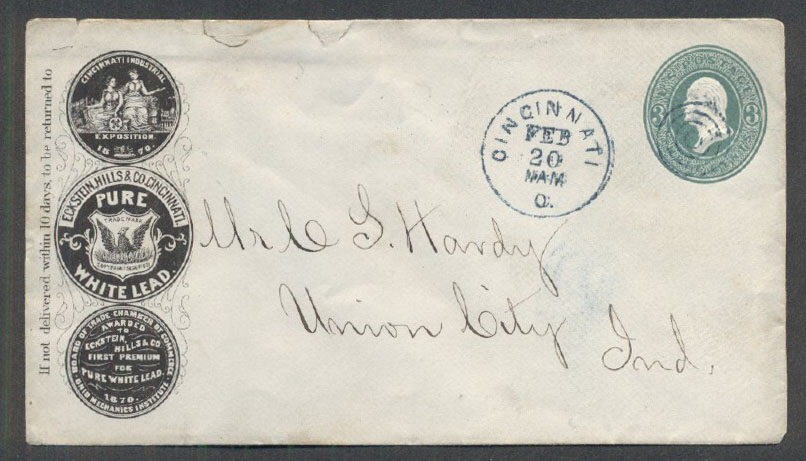 If not delivered within 10 days, to be returned to
CINCINNATI INDUSTRIAL
EXPOSITION
1870
ECKSTEIN, HILLS & CO. CINCINNATI.
PURE
TRADE MARK
WHITE LEAD.
BOARD OF TRADE CHAMBER OF COMMERCE
AWARDED
TO
ECKSTEIN,
HILLS & CO
FIRST PREMIUM
FOR
PURE WHITE LEAD.
1870.
OHIO MECHANICS INSTITUTE
CINCINNATI
FEB
20
O.
U.S. POSTAGE
3 3
Mr C S. Hardy
Union City
Ind.